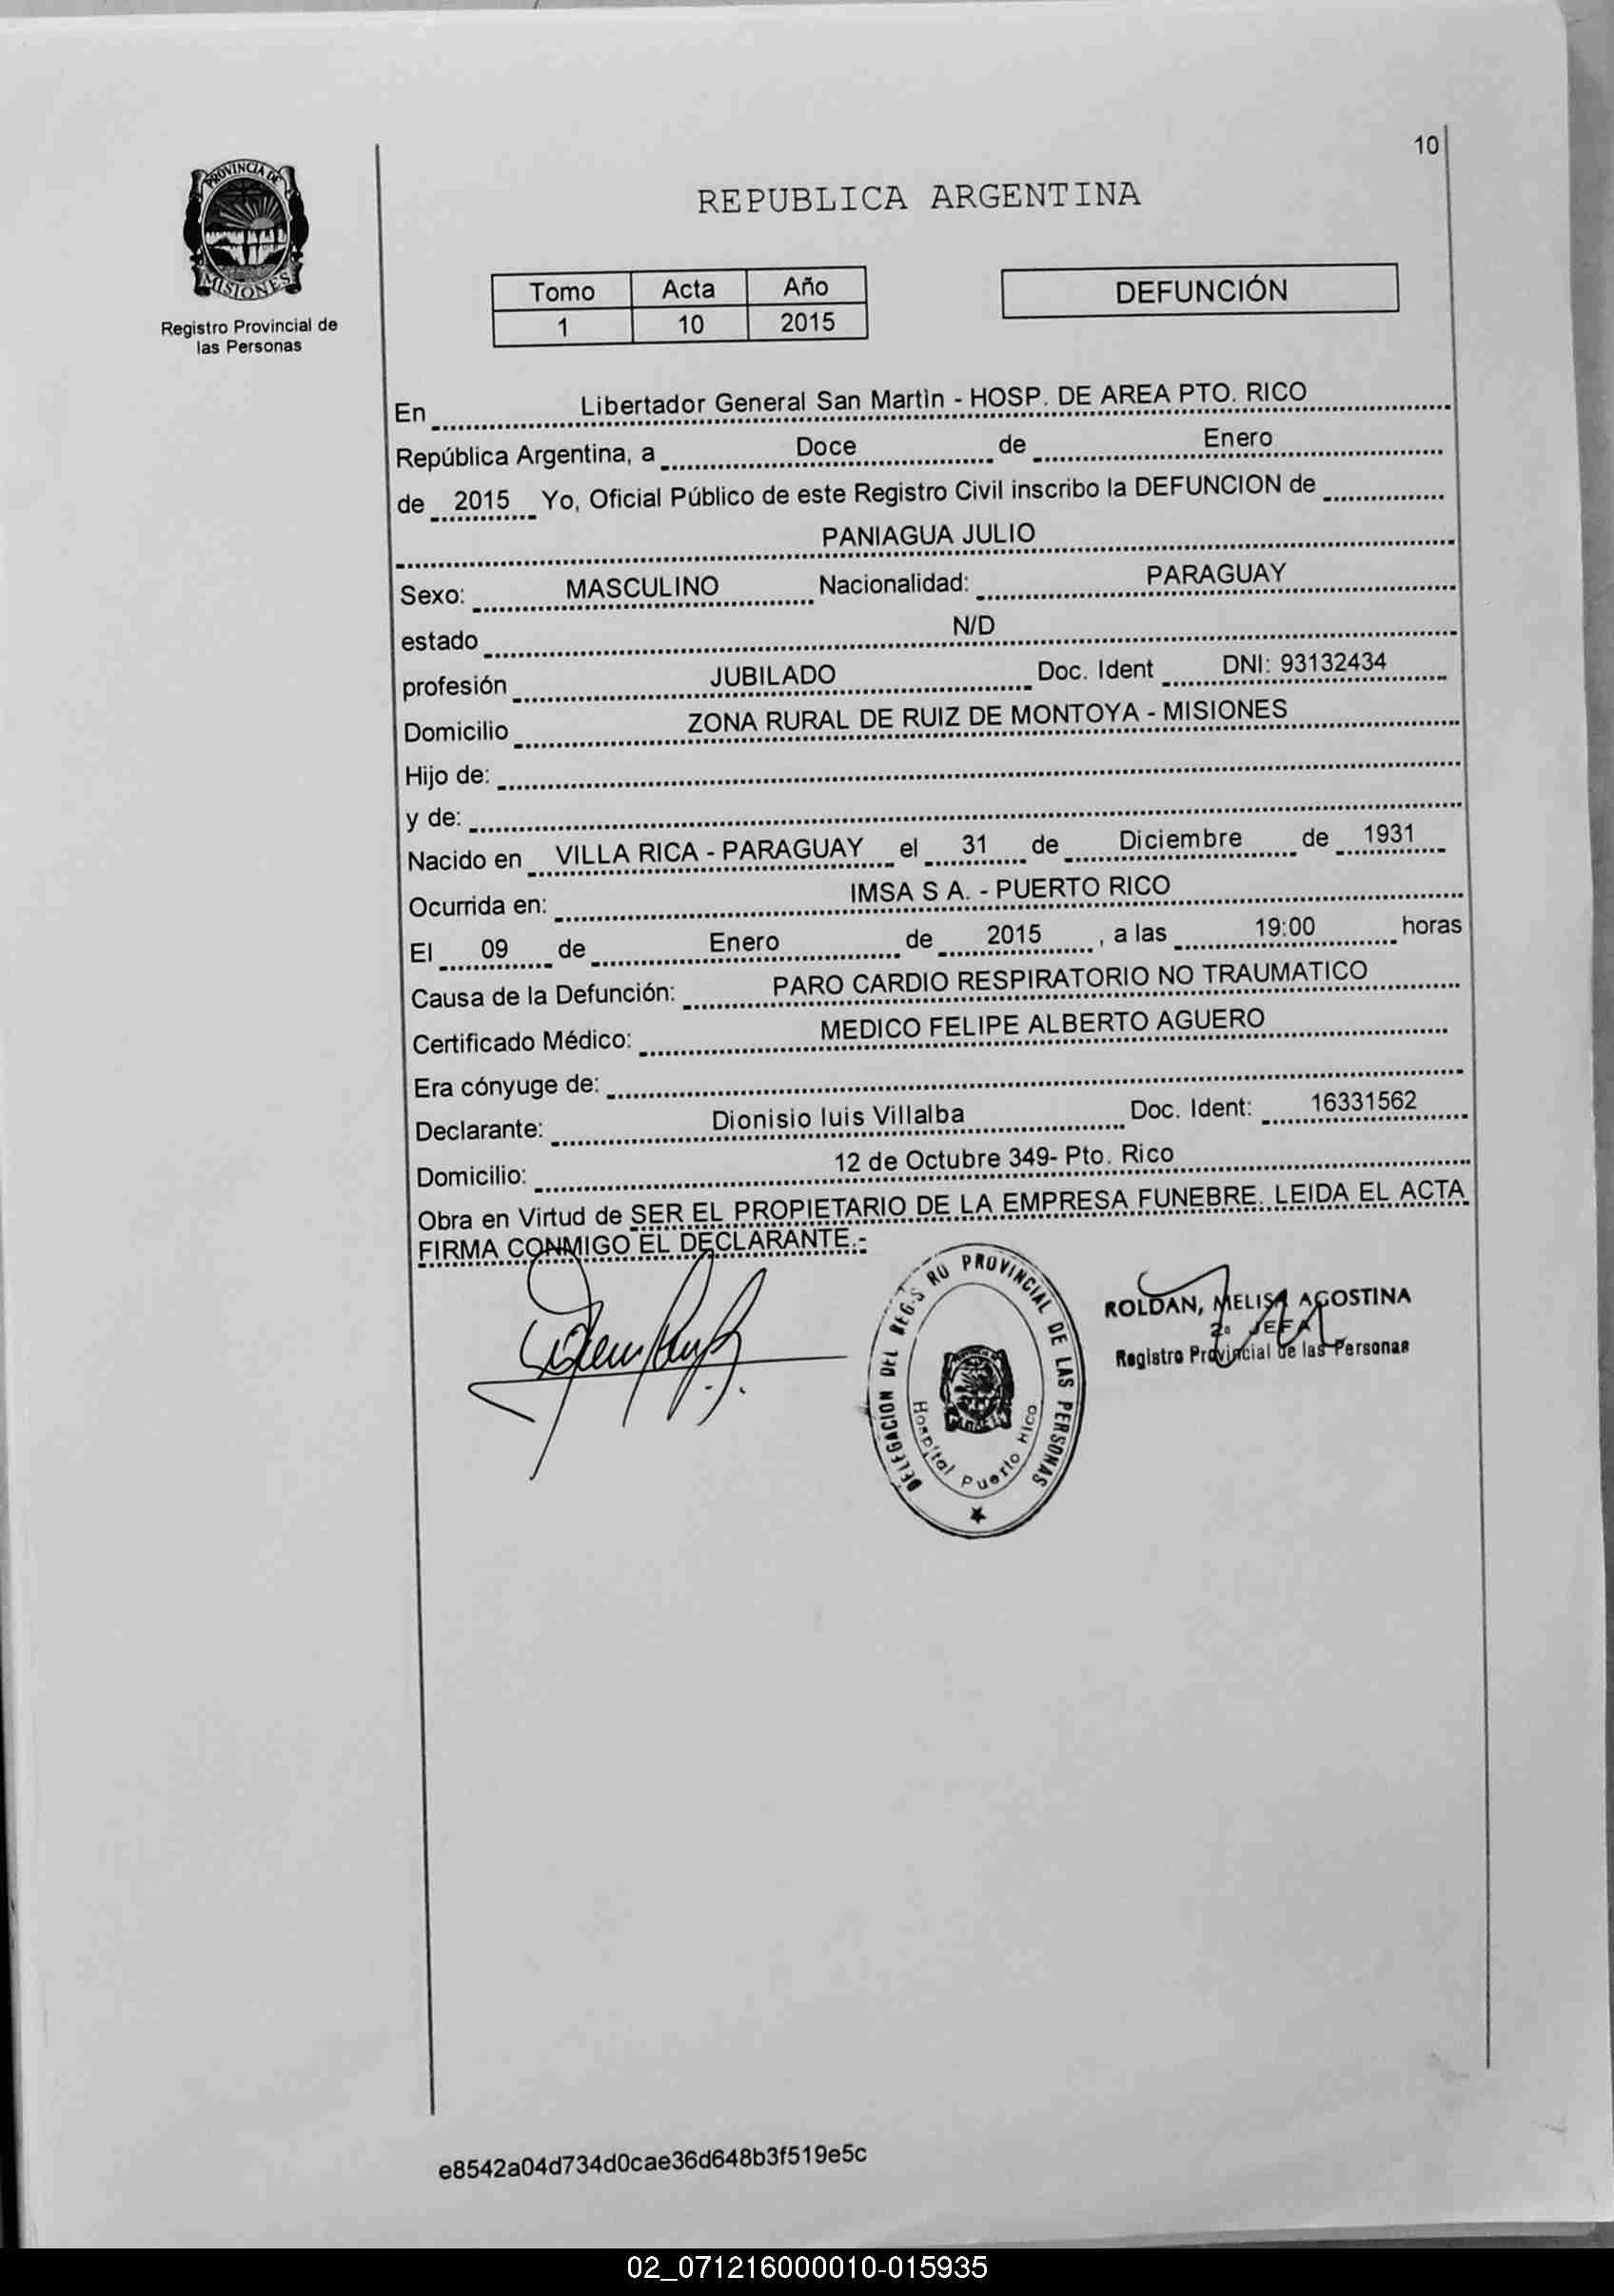 10
PROVINCIA DE
MISIONES
Registro Provincial de
las Personas
REPUBLICA ARGENTINA
Tomo Acta Año
1 10 2015
DEFUNCIÓN
En Libertador General San Martìn - HOSP. DE AREA PTO. RICO
República Argentina, a Doce de Enero
de 2015 Yo, Oficial Público de este Registro Civil inscribo la DEFUNCION de
PANIAGUA JULIO
Sexo: MASCULINO Nacionalidad: PARAGUAY
estado N/D
profesión JUBILADO Doc. Ident DNI: 93132434
Domicilio ZONA RURAL DE RUIZ DE MONTOYA - MISIONES
Hijo de:
y de:
Nacido en VILLA RICA - PARAGUAY el 31 de Diciembre de 1931
Ocurrida en: IMSA S A. - PUERTO RICO
El 09 de Enero de 2015 , a las 19:00 horas
Causa de la Defunción: PARO CARDIO RESPIRATORIO NO TRAUMATICO
Certificado Médico: MEDICO FELIPE ALBERTO AGUERO
Era cónyuge de:
Declarante: Dionisio luis Villalba Doc. Ident: 16331562
Domicilio: 12 de Octubre 349- Pto. Rico
Obra en Virtud de SER EL PROPIETARIO DE LA EMPRESA FUNEBRE. LEIDA EL ACTA
FIRMA CONMIGO EL DECLARANTE.-
DELEGACION DEL REGIS RO PROVINCIAL DE LAS PERSONAS
Hospital Puerto Rico
ROLDAN, MELISA AGOSTINA
2º JEFA
Registro Provincial de las Personas
e8542a04d734d0cae36d648b3f519e5c
02_071216000010-015935